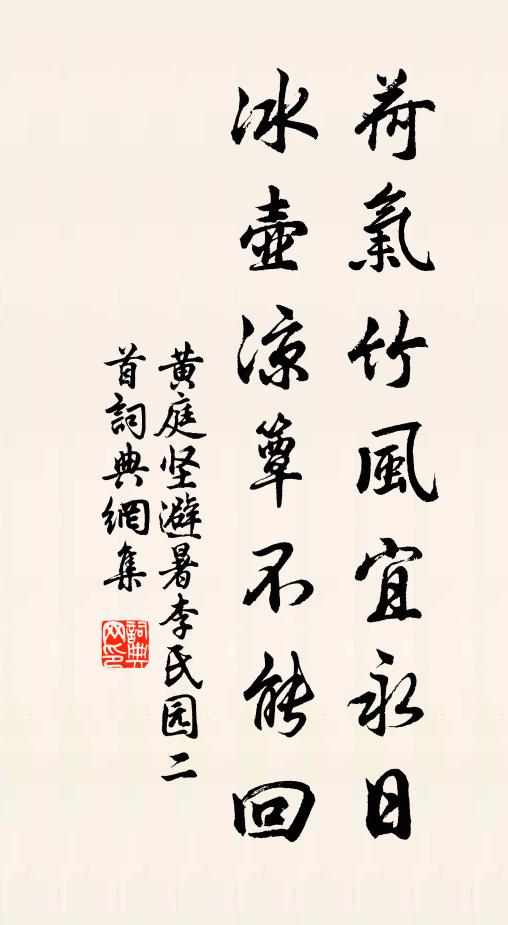 荷氣竹風宜永日
冰壺凉簟不能回
黄庭坚避暑李氏园二
首詞典網集
詞典
网印